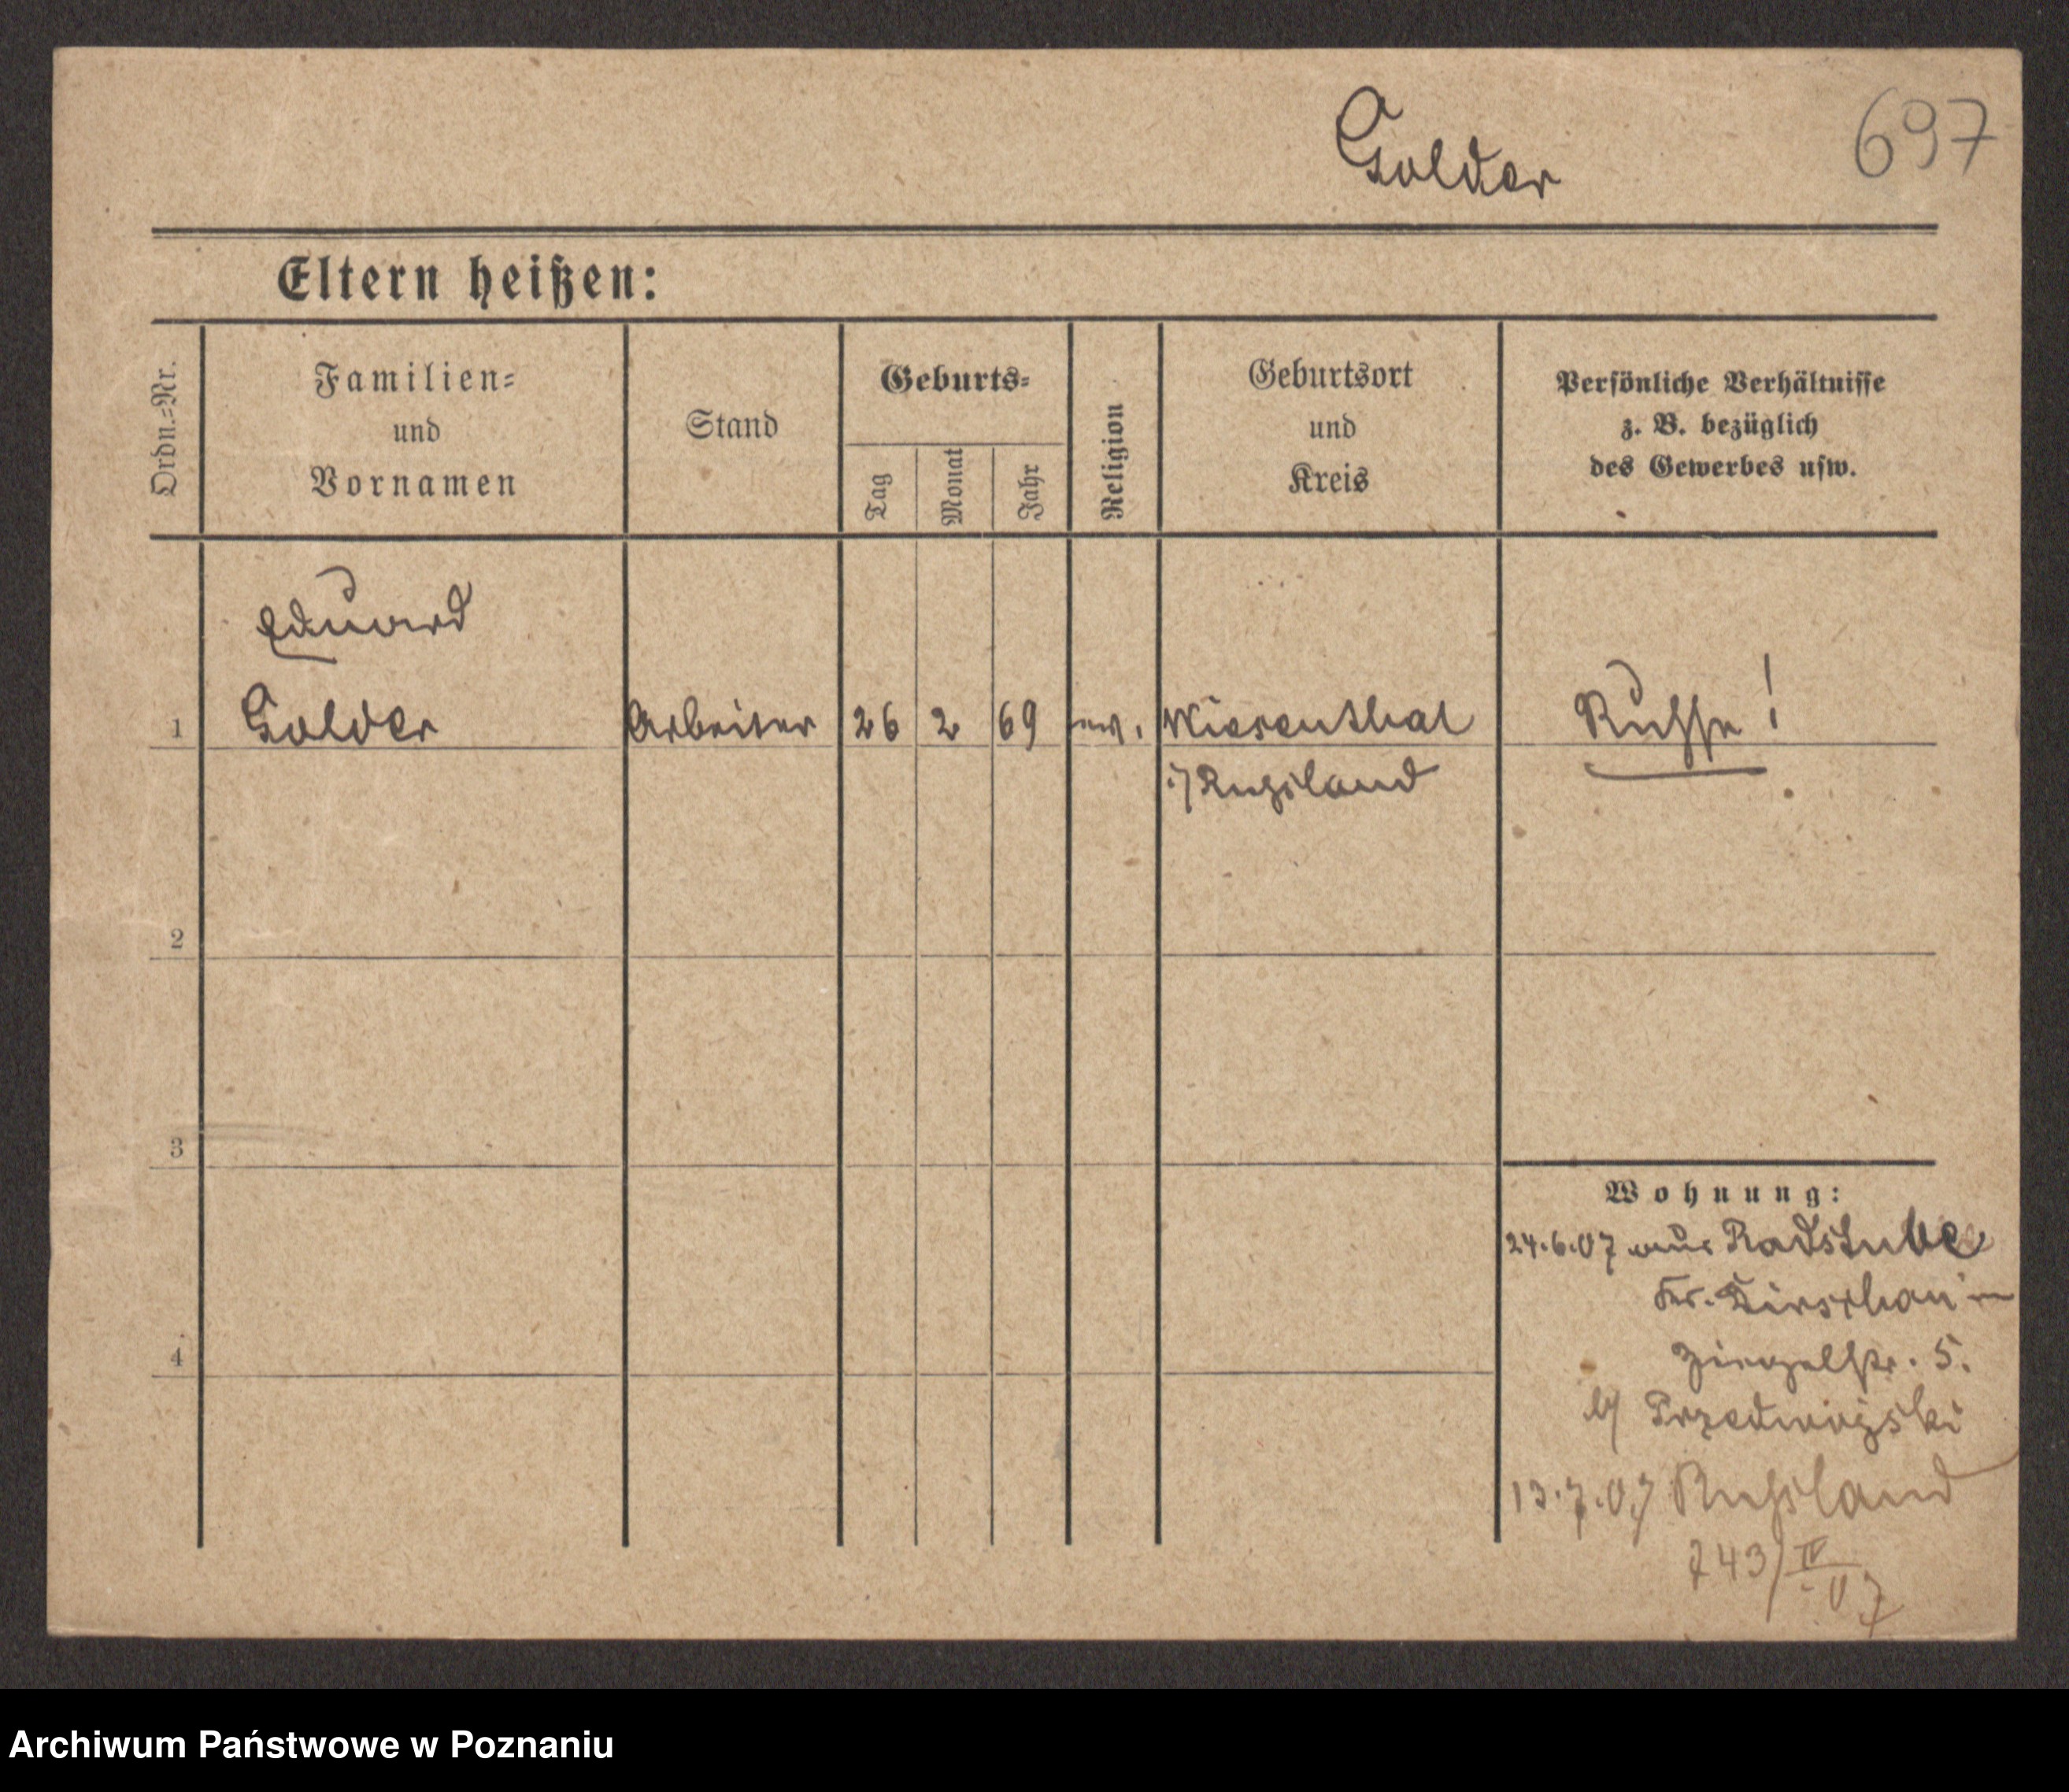 Golder
697
Eltern heißen:
Ordn.=Nr.
Familien=
und
Vornamen
Stand
Geburts=
Tag
Monat
Jahr
Religion
Geburtsort
und
Kreis
Persönliche Verhältnisse
z. B. bezüglich
des Gewerbes usw.
Eduard
1 Golder Arbeiter 26 2 69 ev. Wiesenthal Russe!
i/Russland
2
3
4
Wohnung:
24.6.07 aus Radstube
Kr. Dirschau in
Ziegelstr. 5.
b/
13.7.07 Russland
243/IV 07
Archiwum Państwowe w Poznaniu